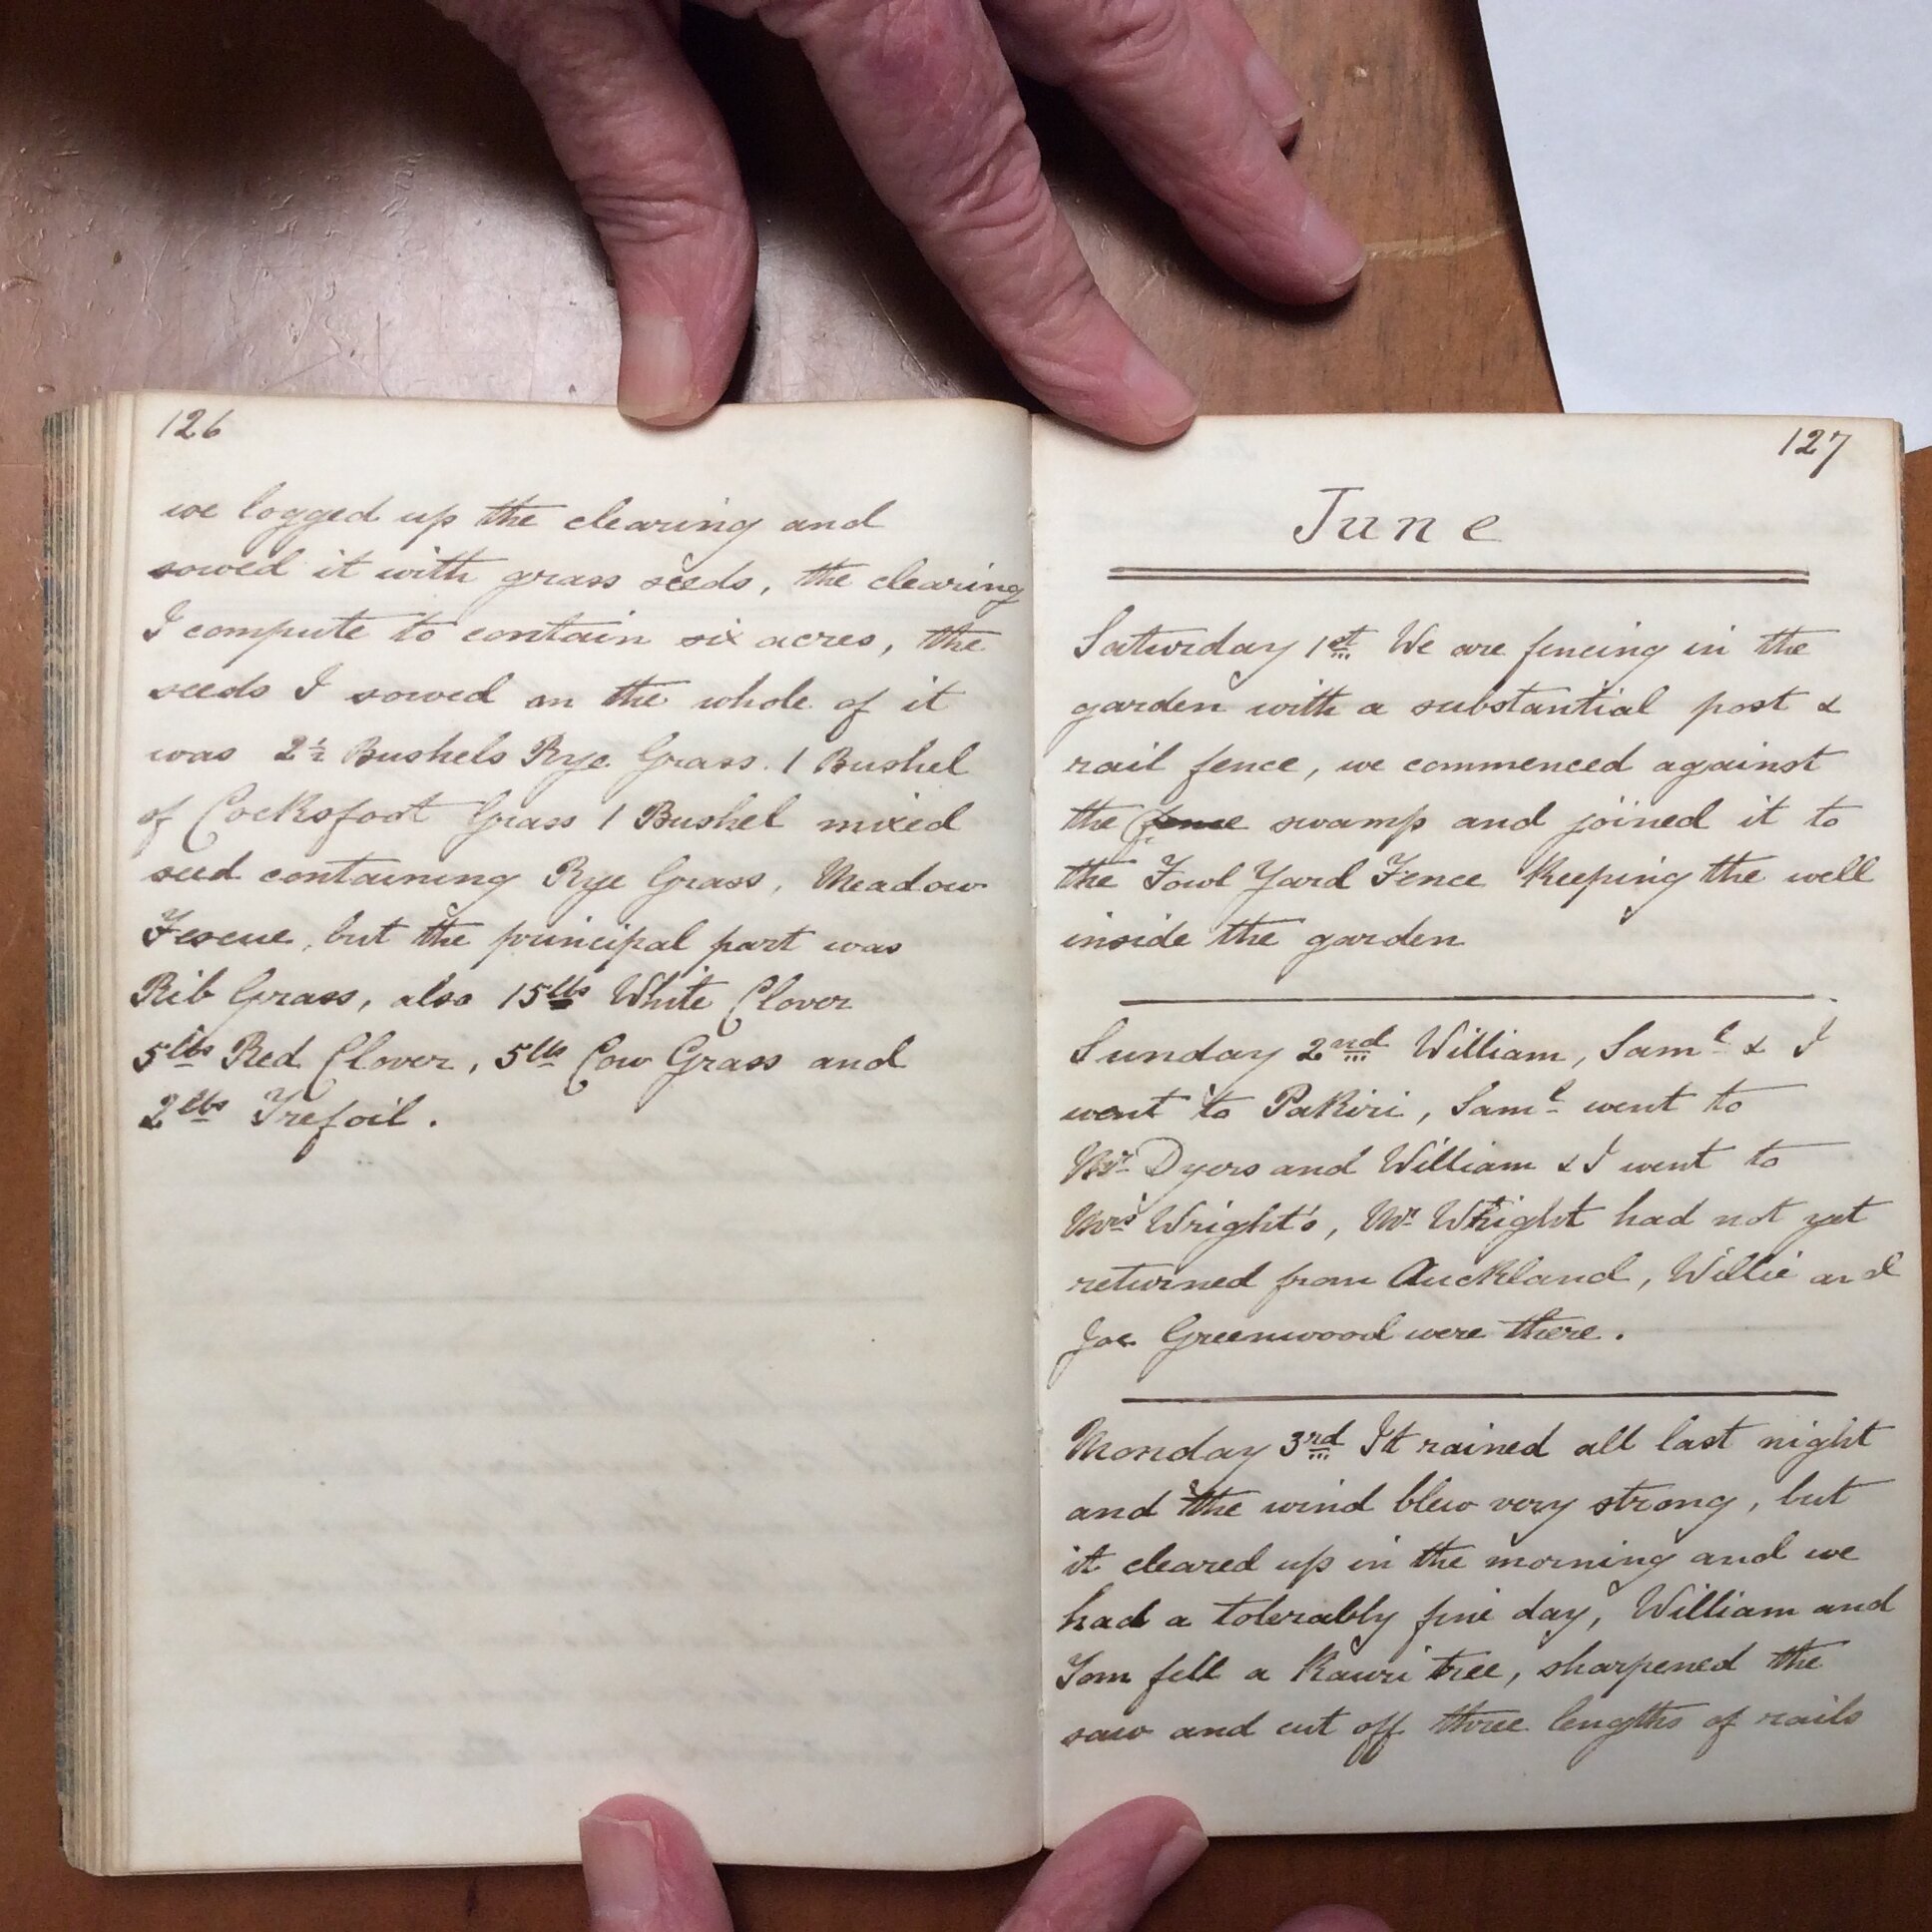 126
we logged up the clearing and
sowed it with grass seeds, the clearing
I compute to contain six acres, the
seeds I sowed on the whole of it
was 2½ Bushels Rye Grass. 1 Bushel
of Cocksfoot Grass 1 Bushel mixed
seed containing Rye Grass, Meadow
Fescue, but the principal part was
Rib Grass, also 15lbs White Clover
5lbs Red Clover, 5lbs Cow Grass and
2lbs Trefoil.
127
June
Saturday 1st We are fencing in the
garden with a substantial post &
rail fence, we commenced against
the fence swamp and joined it to
the Fowl Yard Fence Keeping the well
inside the garden
Sunday 2nd William, Saml & I
went to Pakiri, Saml went to
Mr Dyers and William & I went to
Mrs Wright's, Mr Wright had not yet
returned from Auckland, Willie and
Joe Greenwood were there.
Monday 3rd It rained all last night
and the wind blew very strong, but
it cleared up in the morning and we
had a tolerably fine day, William and
Tom fell a Kauri tree, sharpened the
saw and cut off three lengths of rails